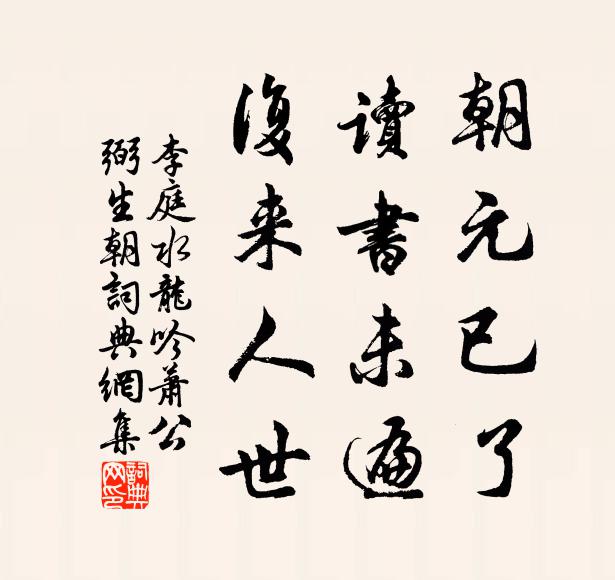 朝元已了
讀書未遍
復来人世
李庭水龍吟蕭公
弼生朝詞典網集
詞典网印